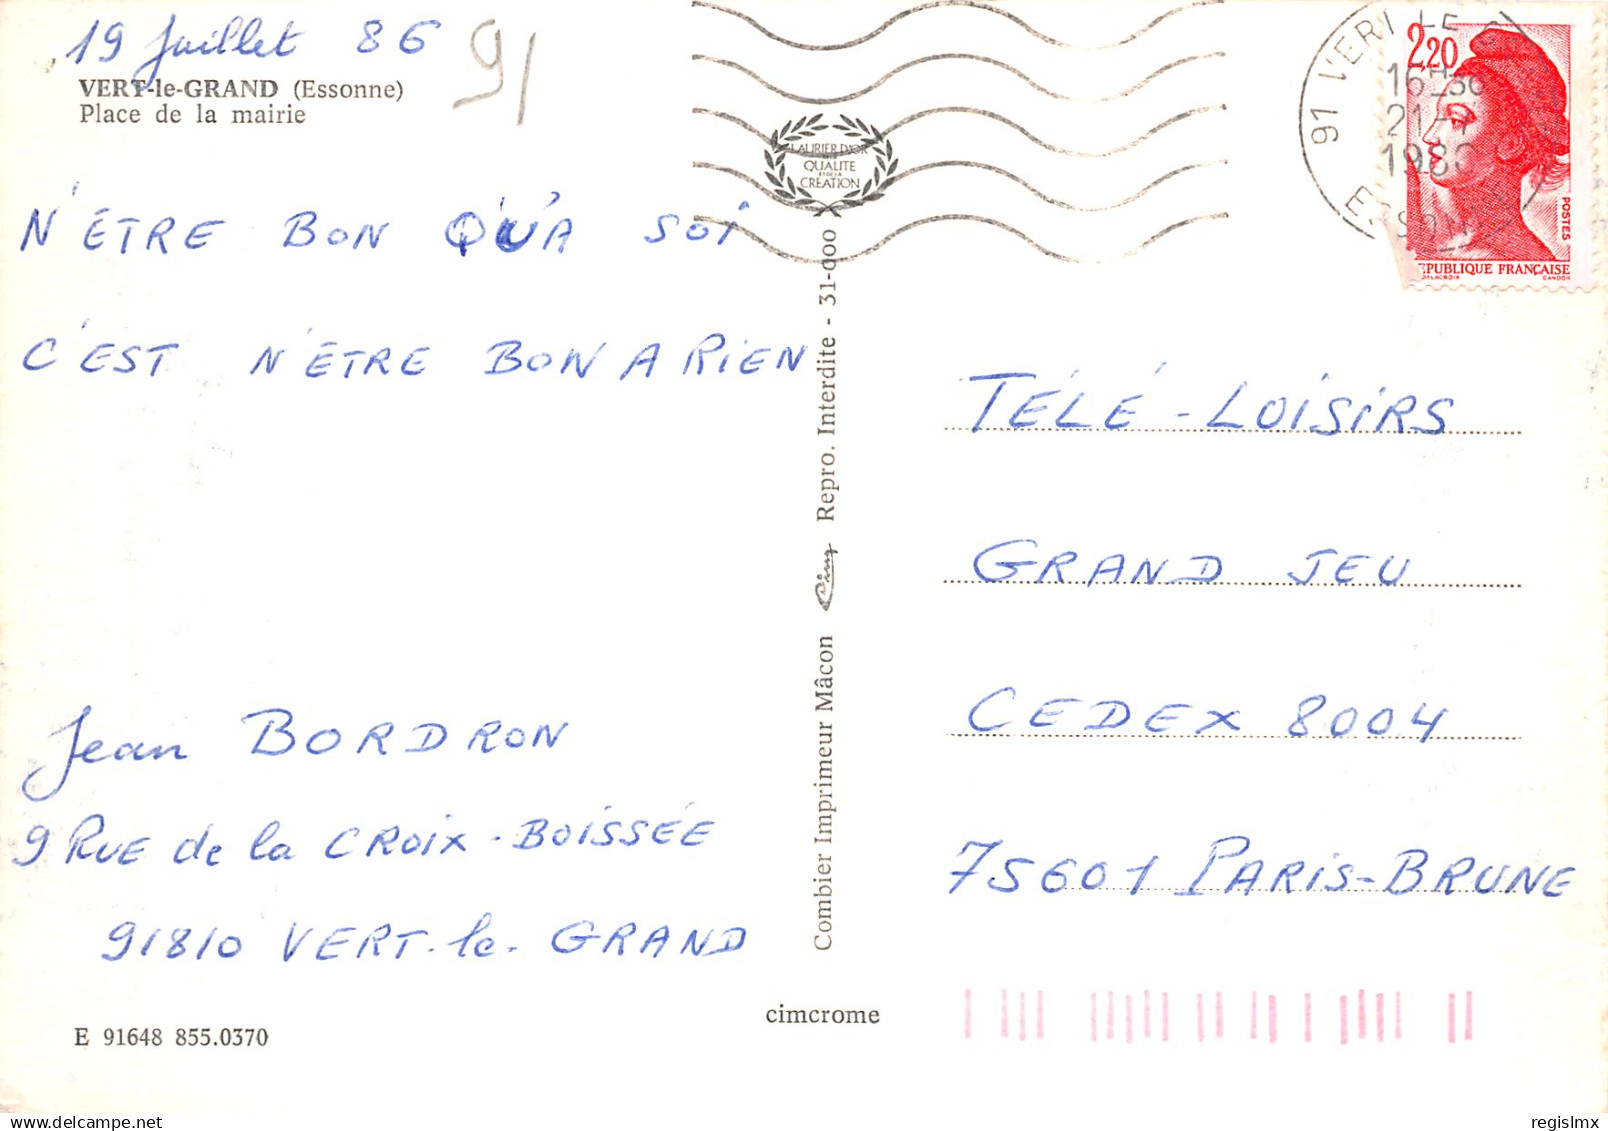 19 Juillet 86
91
VERT-le-GRAND (Essonne)
Place de la mairie
N'ÊTRE BON QU'A SOI
C'EST N'ÊTRE BON A RIEN
Jean BORDRON
9 RUE de la CROIX-BOISSÉE
91810 VERT-le-GRAND
E 91648 855.0370
LAURIER D'OR
QUALITE
ET DE LA
CRÉATION
Combier Imprimeur Mâcon Cim Repro. Interdite - 31-000
cimcrome
91 VERT LE G
16H30
21-7
1986
ESSONNE
2,20
POSTES
RÉPUBLIQUE FRANÇAISE
DELACROIX GANDON
TÉLÉ-LOISIRS
GRAND JEU
CEDEX 8004
75601 PARIS-BRUNE
regislmx